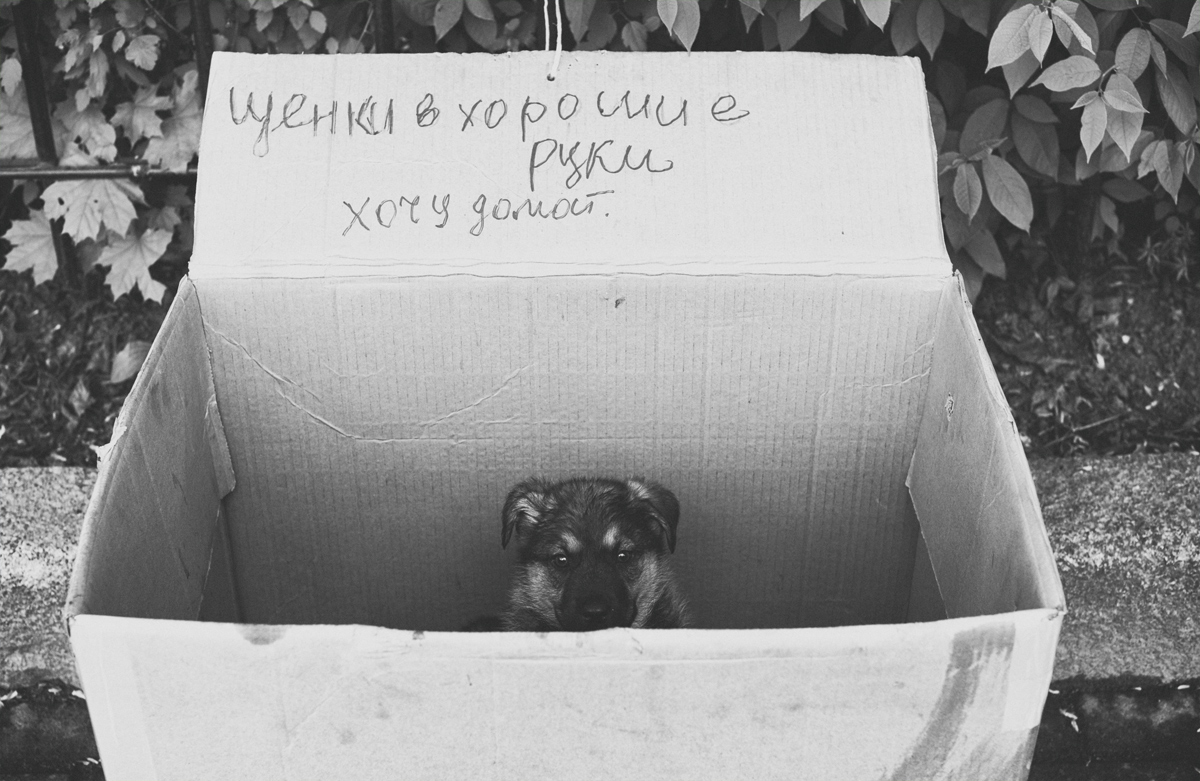 Щенки в хорошие
руки
хочу домой.